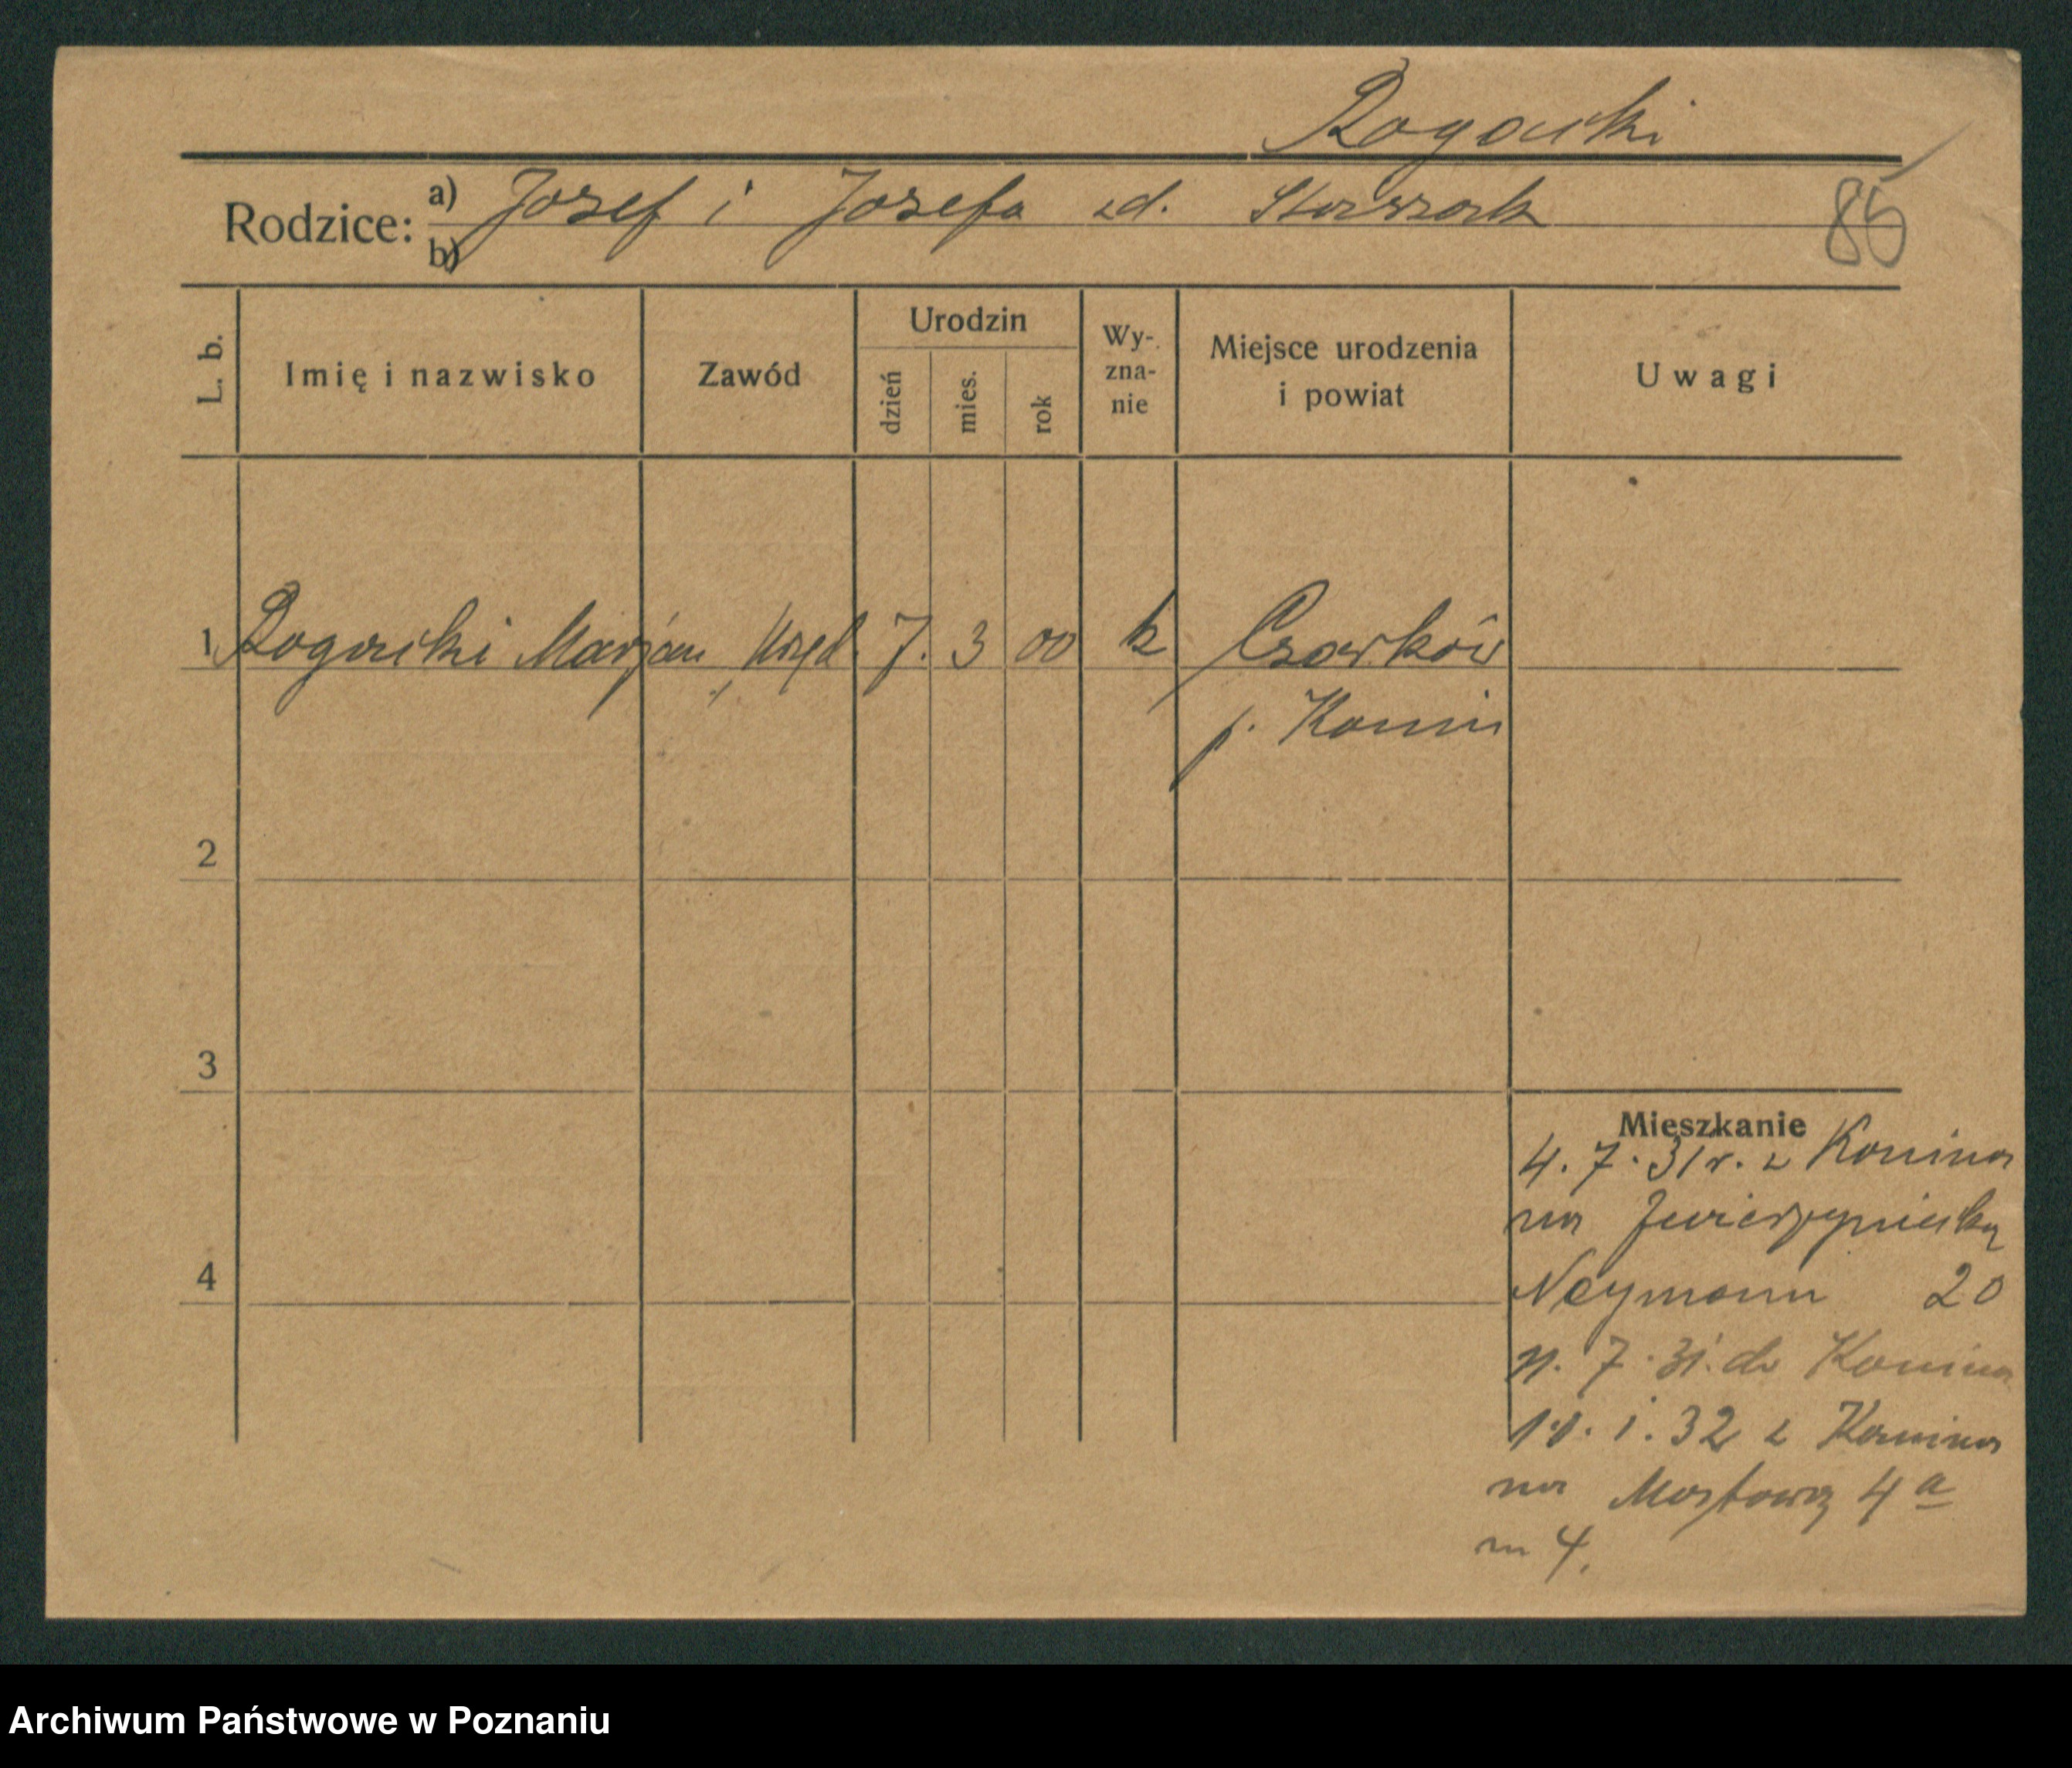 Rogacki
Rodzice: a) Jozef i Jozefa zd. Starzzak
b)
85
L. b. Imię i nazwisko Zawód Urodzin dzień mies. rok Wy-zna-nie Miejsce urodzenia i powiat Uwagi
1 Rogacki Marjan, Urzęd. 7. 3 00 k Czarków
p. Konin
2
3
Mieszkanie
4. 7. 31 r. z Konina
na Zwierzyniecką
4
Neymann 20
7. 31. do Konina
1. 32 z Konina
na Mostową 4 a
m 4.
Archiwum Państwowe w Poznaniu